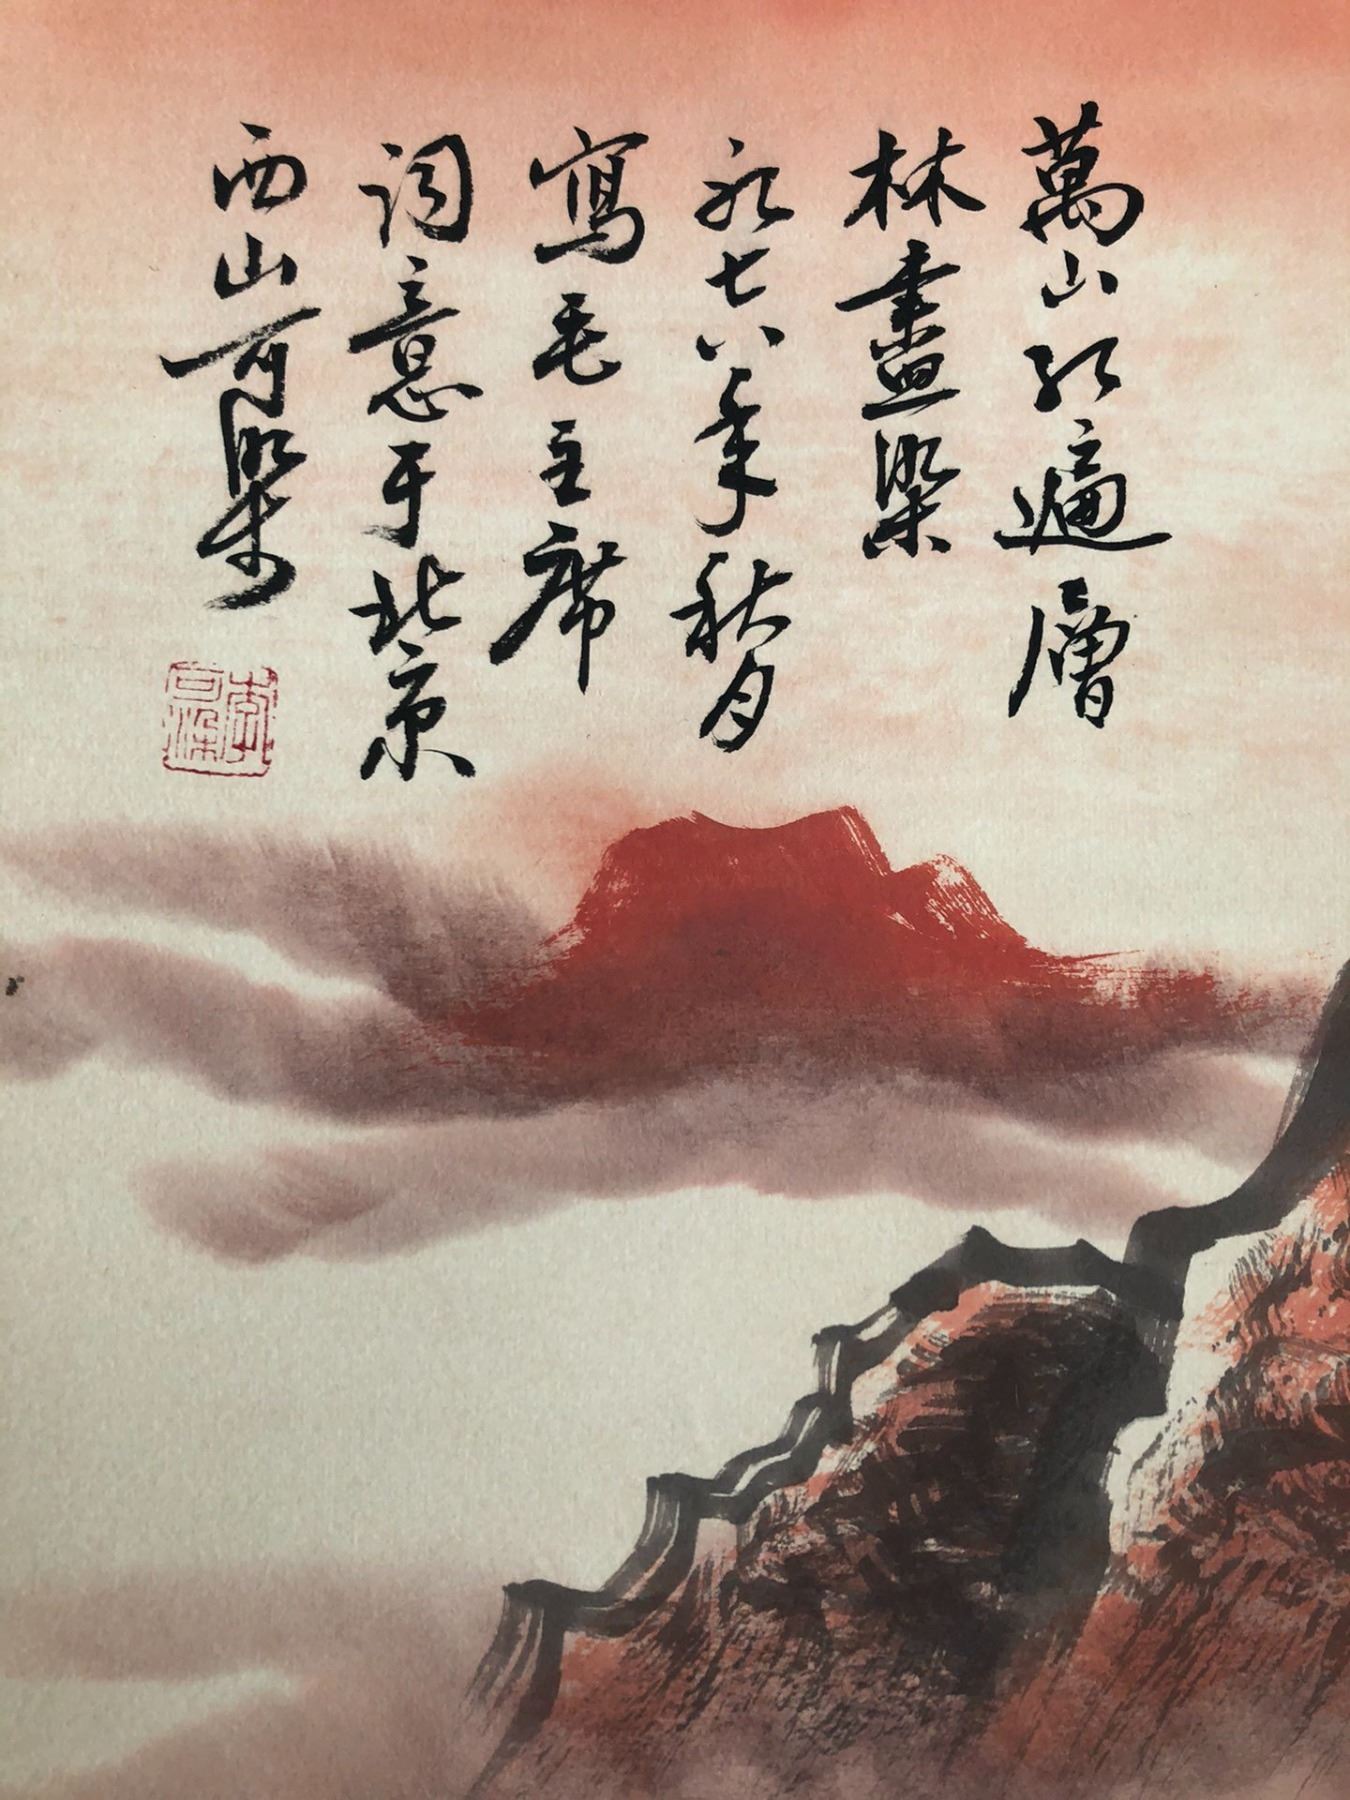 萬山紅遍層
林盡染
一九七八年秋月
寫毛主席
詞意于北京
西山可染
李可染